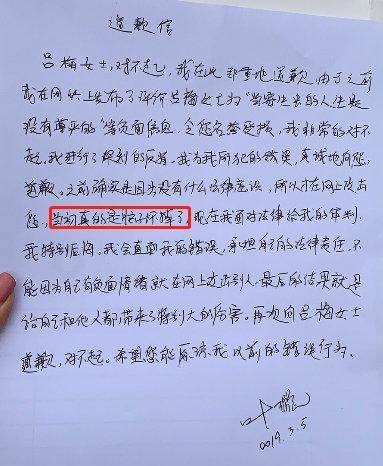 道歉信
吕梅女士,对不起,我在此郑重地道歉,由于之前
我在网上发布了评价吕梅女士为“当寄生虫的人生是
没有尊严的”等负面信息,令您名誉受损,我非常的对不
起,我进行了深刻的反省,我为我所犯的错误,真诚地向您
道歉。之前确实是因为没有什么法律意识,所以才在网上攻击
您,当初真的是脑子坏掉了,现在我面对法律给我的审判,
我特别后悔,我会直面我的错误,承担自己的法律责任,不
能因为自己有负面情绪就在网上攻击别人,最后的结果就是
给自己和他人都带来了特别大的伤害。再次向吕梅女士
道歉,对不起。希望您能原谅我以前的错误行为。
2019.3.5